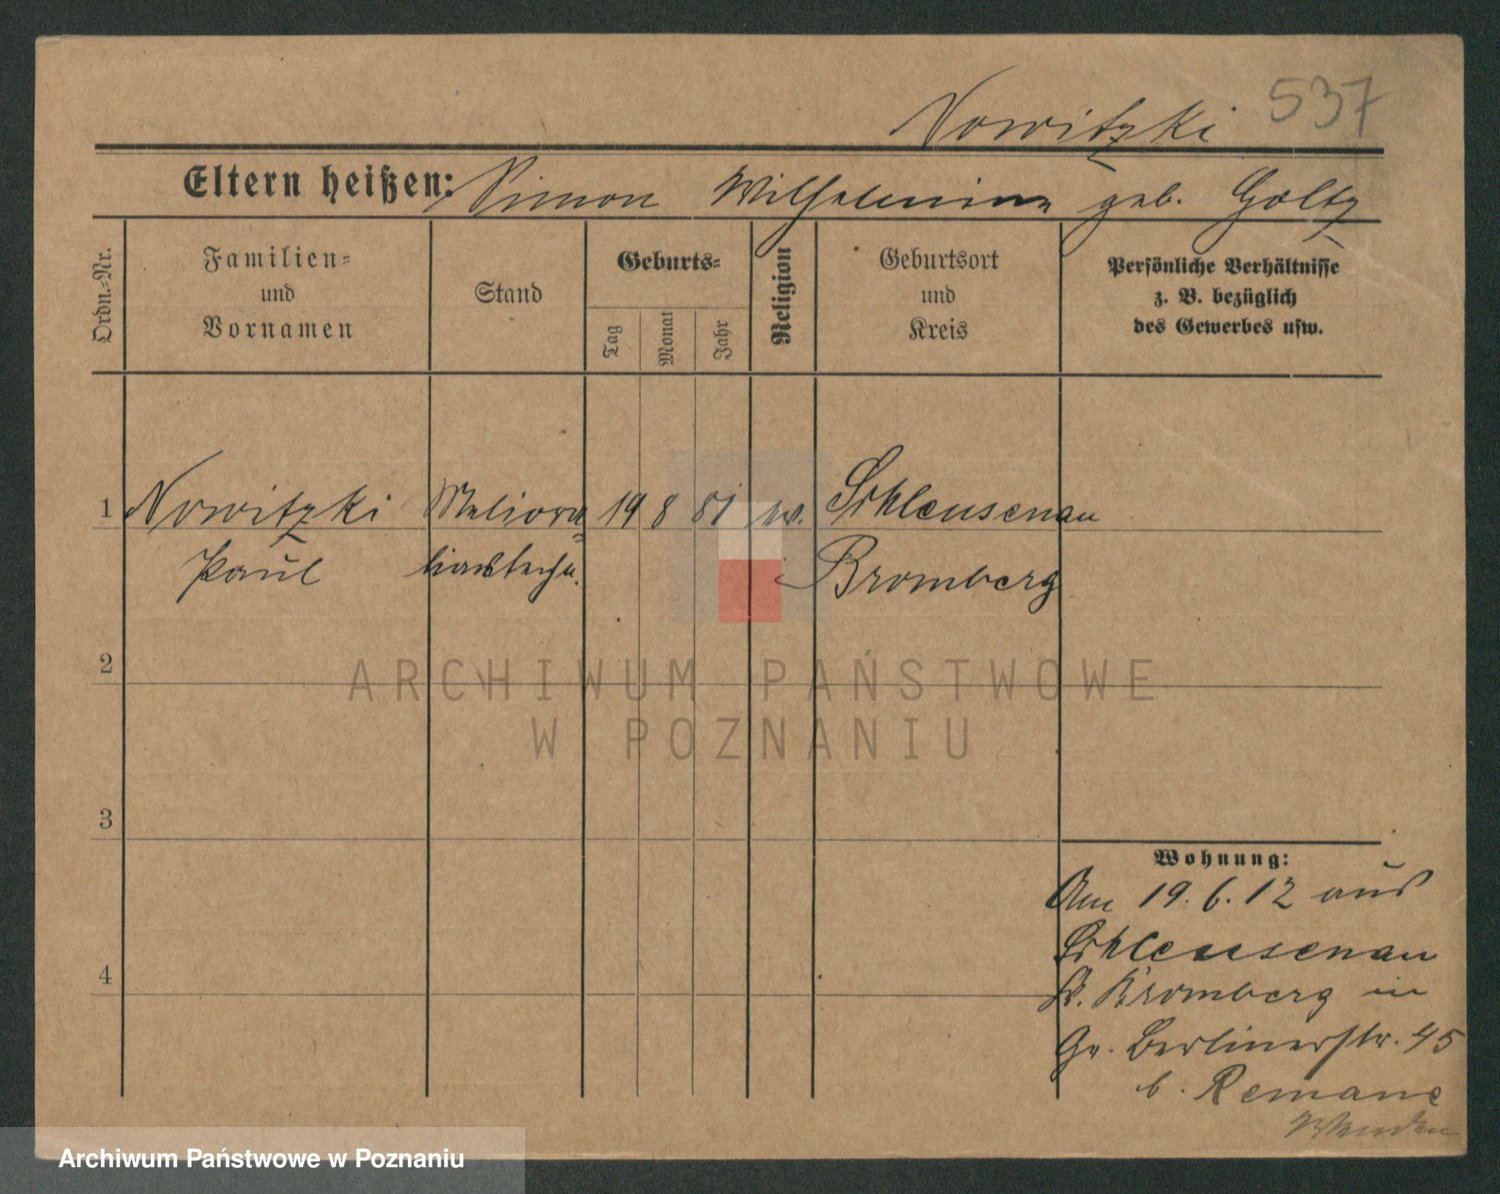 Nowitzki 537
Eltern heißen: Simon Wilhelmine geb. Goltz
Ordn.-Nr.
Familien-
und
Vornamen
Stand
Geburts-
Tag
Monat
Jahr
Religion
Geburtsort
und
Kreis
Persönliche Verhältnisse
z. B. bezüglich
des Gewerbes usw.
1 Nowitzki Meliora 19 8 81 ev. Schleusenau
Paul tionstechn. Bromberg
2
ARCHIWUM PAŃSTWOWE
W POZNANIU
3
Wohnung:
Am 19.6.12 aus
Schleusenau
4
Kr. Bromberg in
Gr. Berlinerstr. 45
b. Remane
Wenden
Archiwum Państwowe w Poznaniu